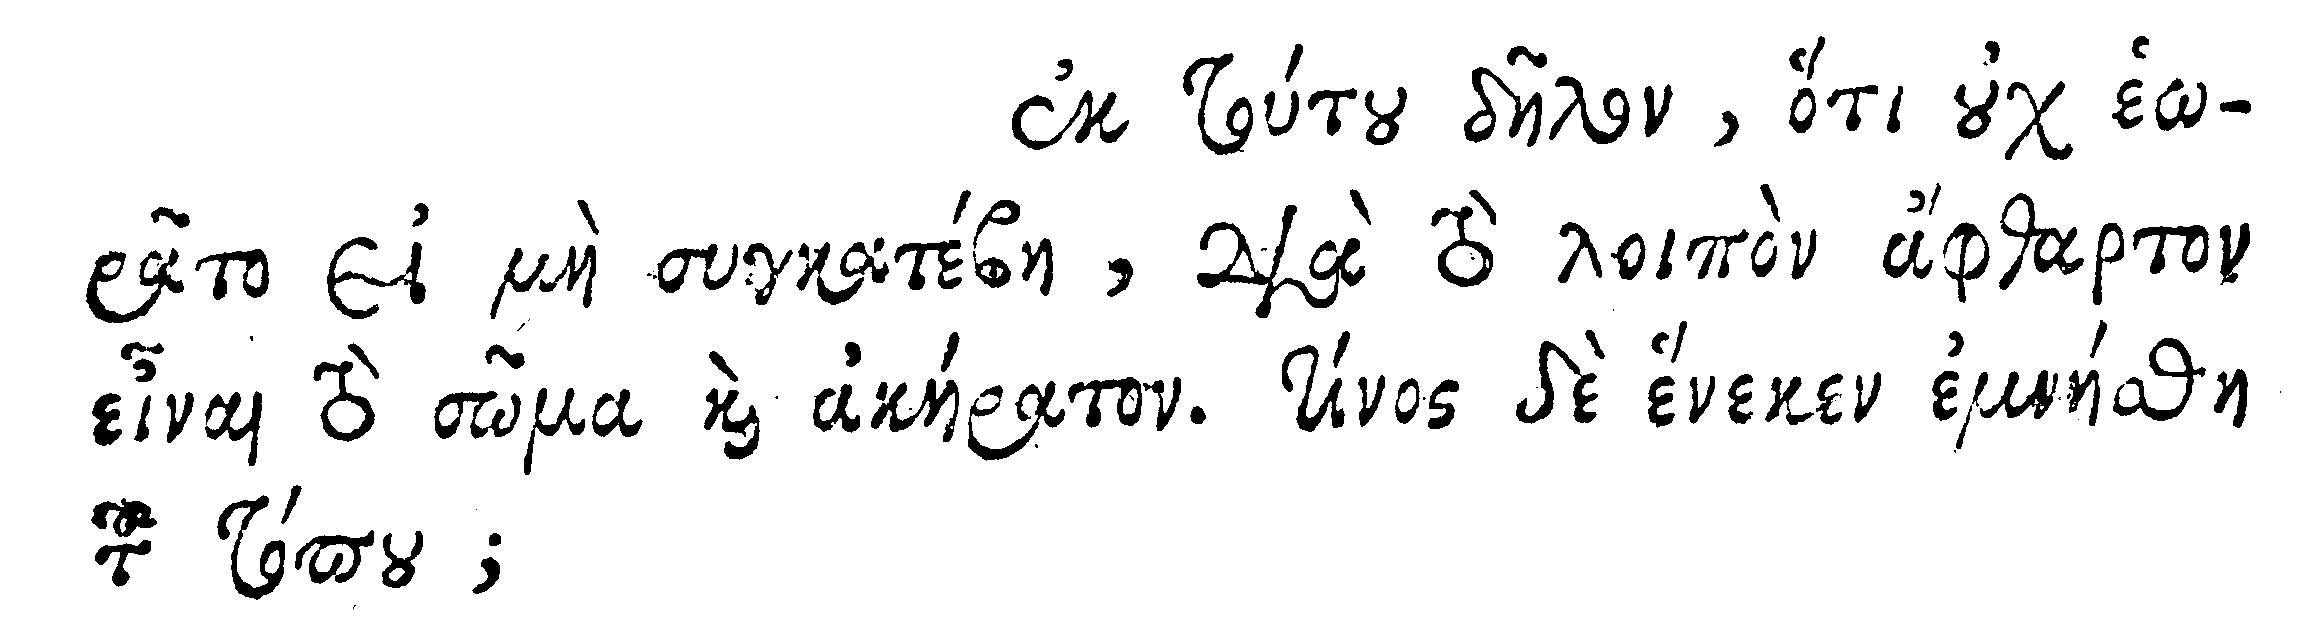 ἐκ τούτου δῆλον, ὅτι οὐχ ἑω-
ρᾶτο εἰ μὴ συγκατέβη, διὰ τὸ λοιπὸν ἄφθαρτον
εἶναι τὸ σῶμα καὶ ἀκήρατον. τίνος δὲ ἕνεκεν ἐμνήσθη
τοῦ τόπου;